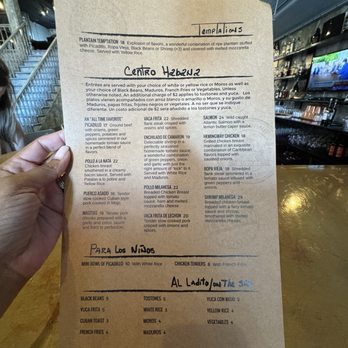 Temptations
PLANTAIN TEMPTATION 18 Explosion of flavors, a wonderful combination of ripe plantain stuffed
with Picadillo, Ropa Vieja, Black Beans or Shrimp (+2) and covered with melted mozzarella
cheese. Served with Yellow Rice.
Centro Habana
Entrées are served with your choice of white or yellow rice or Moros as well as
your choice of Black Beans, Maduros, French Fries or Vegetables. Unless
otherwise noted. An additional charge of $2 applies to tostones and yuca. Los
platos vienen acompañados con arroz blanco o amarillo o Moros, y lo golpe de
Maduros, papas fritas, frijoles negros o vegetales. A no ser que se indique
diferente. Un costo adicional de $2 será aplicado a tostones y yuca.
HA "ALL TIME FAVORITE"
PICADILLO 17 Ground beef
with onions, green
peppers, potatoes and
olives simmered in our
homemade tomato sauce
in a perfect blend of
spices.
POLLO A LA NATA 22
Chicken Breast
smothered in a creamy
bacon sauce. Served with
Potatoes and
Yellow Rice
PUERCO ASADO 18 Tender
slow cooked Cuban style
pork cooked in Mojo.
MASITAS 19 Tender pork
chunks prepared with a
garlic and citrus sauce
and fried to perfection.
VACA FRITA 22 Shredded
flank steak grilled with
onions and spices.
ENCHILADO DE CAMARON 19
Delectable shrimp in a
perfectly seasoned
homemade tomato sauce;
a wonderful combination
of green peppers, onion
and garlic with just the
right amount of "kick" to it.
Served with White Rice
and Maduros.
POLLO MILANESA 22
Breaded Chicken Breast
topped with tomato
sauce, ham and melted
mozzarella cheese
VACA FRITA DE LECHON 20
Tender slow cooked pork
grilled with onions and
spices.
SALMON 24 Wild caught
Atlantic Salmon with a
lemon butter caper sauce.
LEGENDARY CHICKEN 18
Grilled chicken breast
marinated in an exquisite
combination of Caribbean
flavors topped with
sautéed onions.
ROPA VIEJA 19 Shredded
flank steak simmered in a
tomato sauce infused with
green peppers and
onions.
SHRIMP MILANESA 29
Breaded shrimp topped
with a fiery tomato
sauce and shrimp,
smothered with melted
mozzarella cheese
Para Los Niños
MINI BOWL OF PICADILLO 10 With White Rice
CHICKEN TENDERS 8 With French Fries
Al Ladito/on the Side
BLACK BEANS 5
YUCA FRITA 5
CUBAN TOAST 3
FRENCH FRIES 4
TOSTONES 5
WHITE RICE 3
MOROS 4
MADUROS 4
YUCA CON MOJO 5
YELLOW RICE 4
VEGETABLES 4